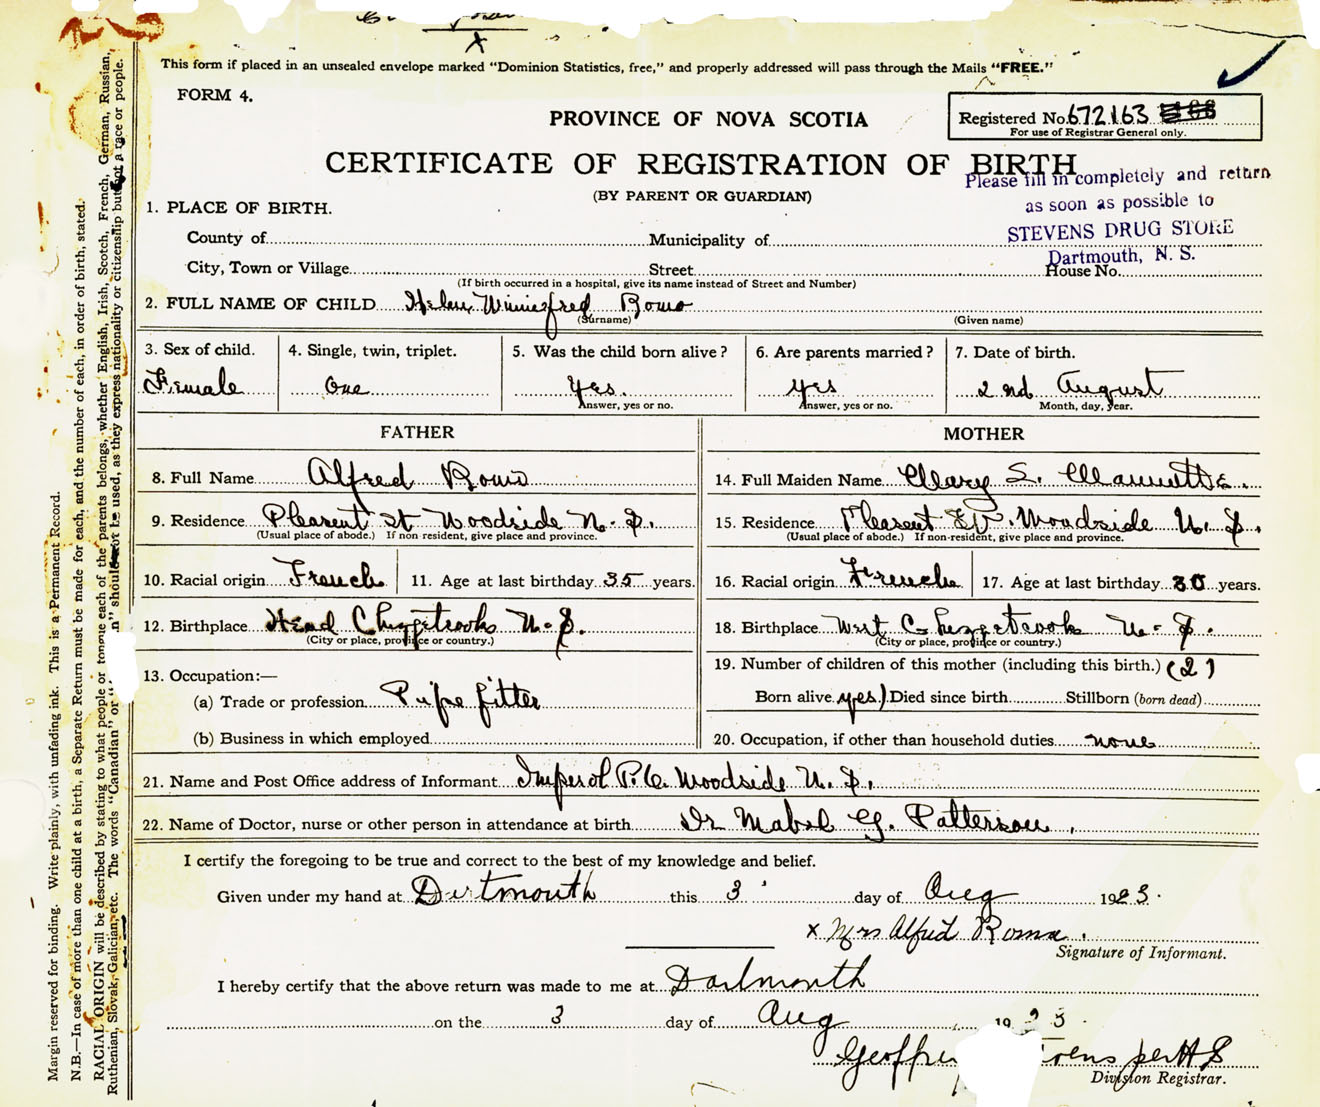 This form if placed in an unsealed envelope marked "Dominion Statistics, free," and properly addressed will pass through the Mails "FREE."
FORM 4.
PROVINCE OF NOVA SCOTIA
Registered No. 672163
For use of Registrar General only.
CERTIFICATE OF REGISTRATION OF BIRTH
(BY PARENT OR GUARDIAN)
Please fill in completely and return
as soon as possible to
STEVENS DRUG STORE
Dartmouth, N. S.
1. PLACE OF BIRTH.
County of Municipality of
City, Town or Village Street House No.
(If birth occurred in a hospital, give its name instead of Street and Number)
2. FULL NAME OF CHILD Helen Winniefred Romo
(Surname) (Given name)
3. Sex of child. 4. Single, twin, triplet. 5. Was the child born alive? 6. Are parents married? 7. Date of birth.
Female One Yes. yes 2nd August
Answer, yes or no. Answer, yes or no. Month, day, year.
FATHER MOTHER
8. Full Name Alfred Romo 14. Full Maiden Name Mary S. Mannette.
9. Residence Pleasent St Woodside N. S. 15. Residence Pleasent St. Woodside N. S.
(Usual place of abode.) If non resident, give place and province. (Usual place of abode.) If non-resident, give place and province.
10. Racial origin French 11. Age at last birthday 35 years. 16. Racial origin French 17. Age at last birthday 30 years.
12. Birthplace Head Chezzetcooks N. S. 18. Birthplace West Chezzetcook N. S.
(City or place, province or country.) (City or place, province or country.)
13. Occupation:— 19. Number of children of this mother (including this birth.) (2)
(a) Trade or profession Pipe fitter Born alive yes) Died since birth Stillborn (born dead)
(b) Business in which employed 20. Occupation, if other than household duties none
21. Name and Post Office address of Informant Imperol P.O. Woodside N. S.
22. Name of Doctor, nurse or other person in attendance at birth Dr Mabel G. Patterson.
I certify the foregoing to be true and correct to the best of my knowledge and belief.
Given under my hand at Dartmouth this 3 day of Aug 1923.
x Mrs Alfred Roma.
Signature of Informant.
I hereby certify that the above return was made to me at Dartmouth
on the 3 day of Aug 1923
Geoffrey per H S
Division Registrar.
Margin reserved for binding. Write plainly, with unfading ink. This is a Permanent Record.
N.B.—In case of more than one child at a birth, a Separate Return must be made for each, and the number of each, in order of birth, stated.
RACIAL ORIGIN will be described by stating to what people or tongue each of the parents belongs, whether English, Irish, Scotch, French, German, Russian,
Ruthenian, Slovak, Galician, etc. The words "Canadian" or " n" should not be used, as they express nationality or citizenship but not a race or people.